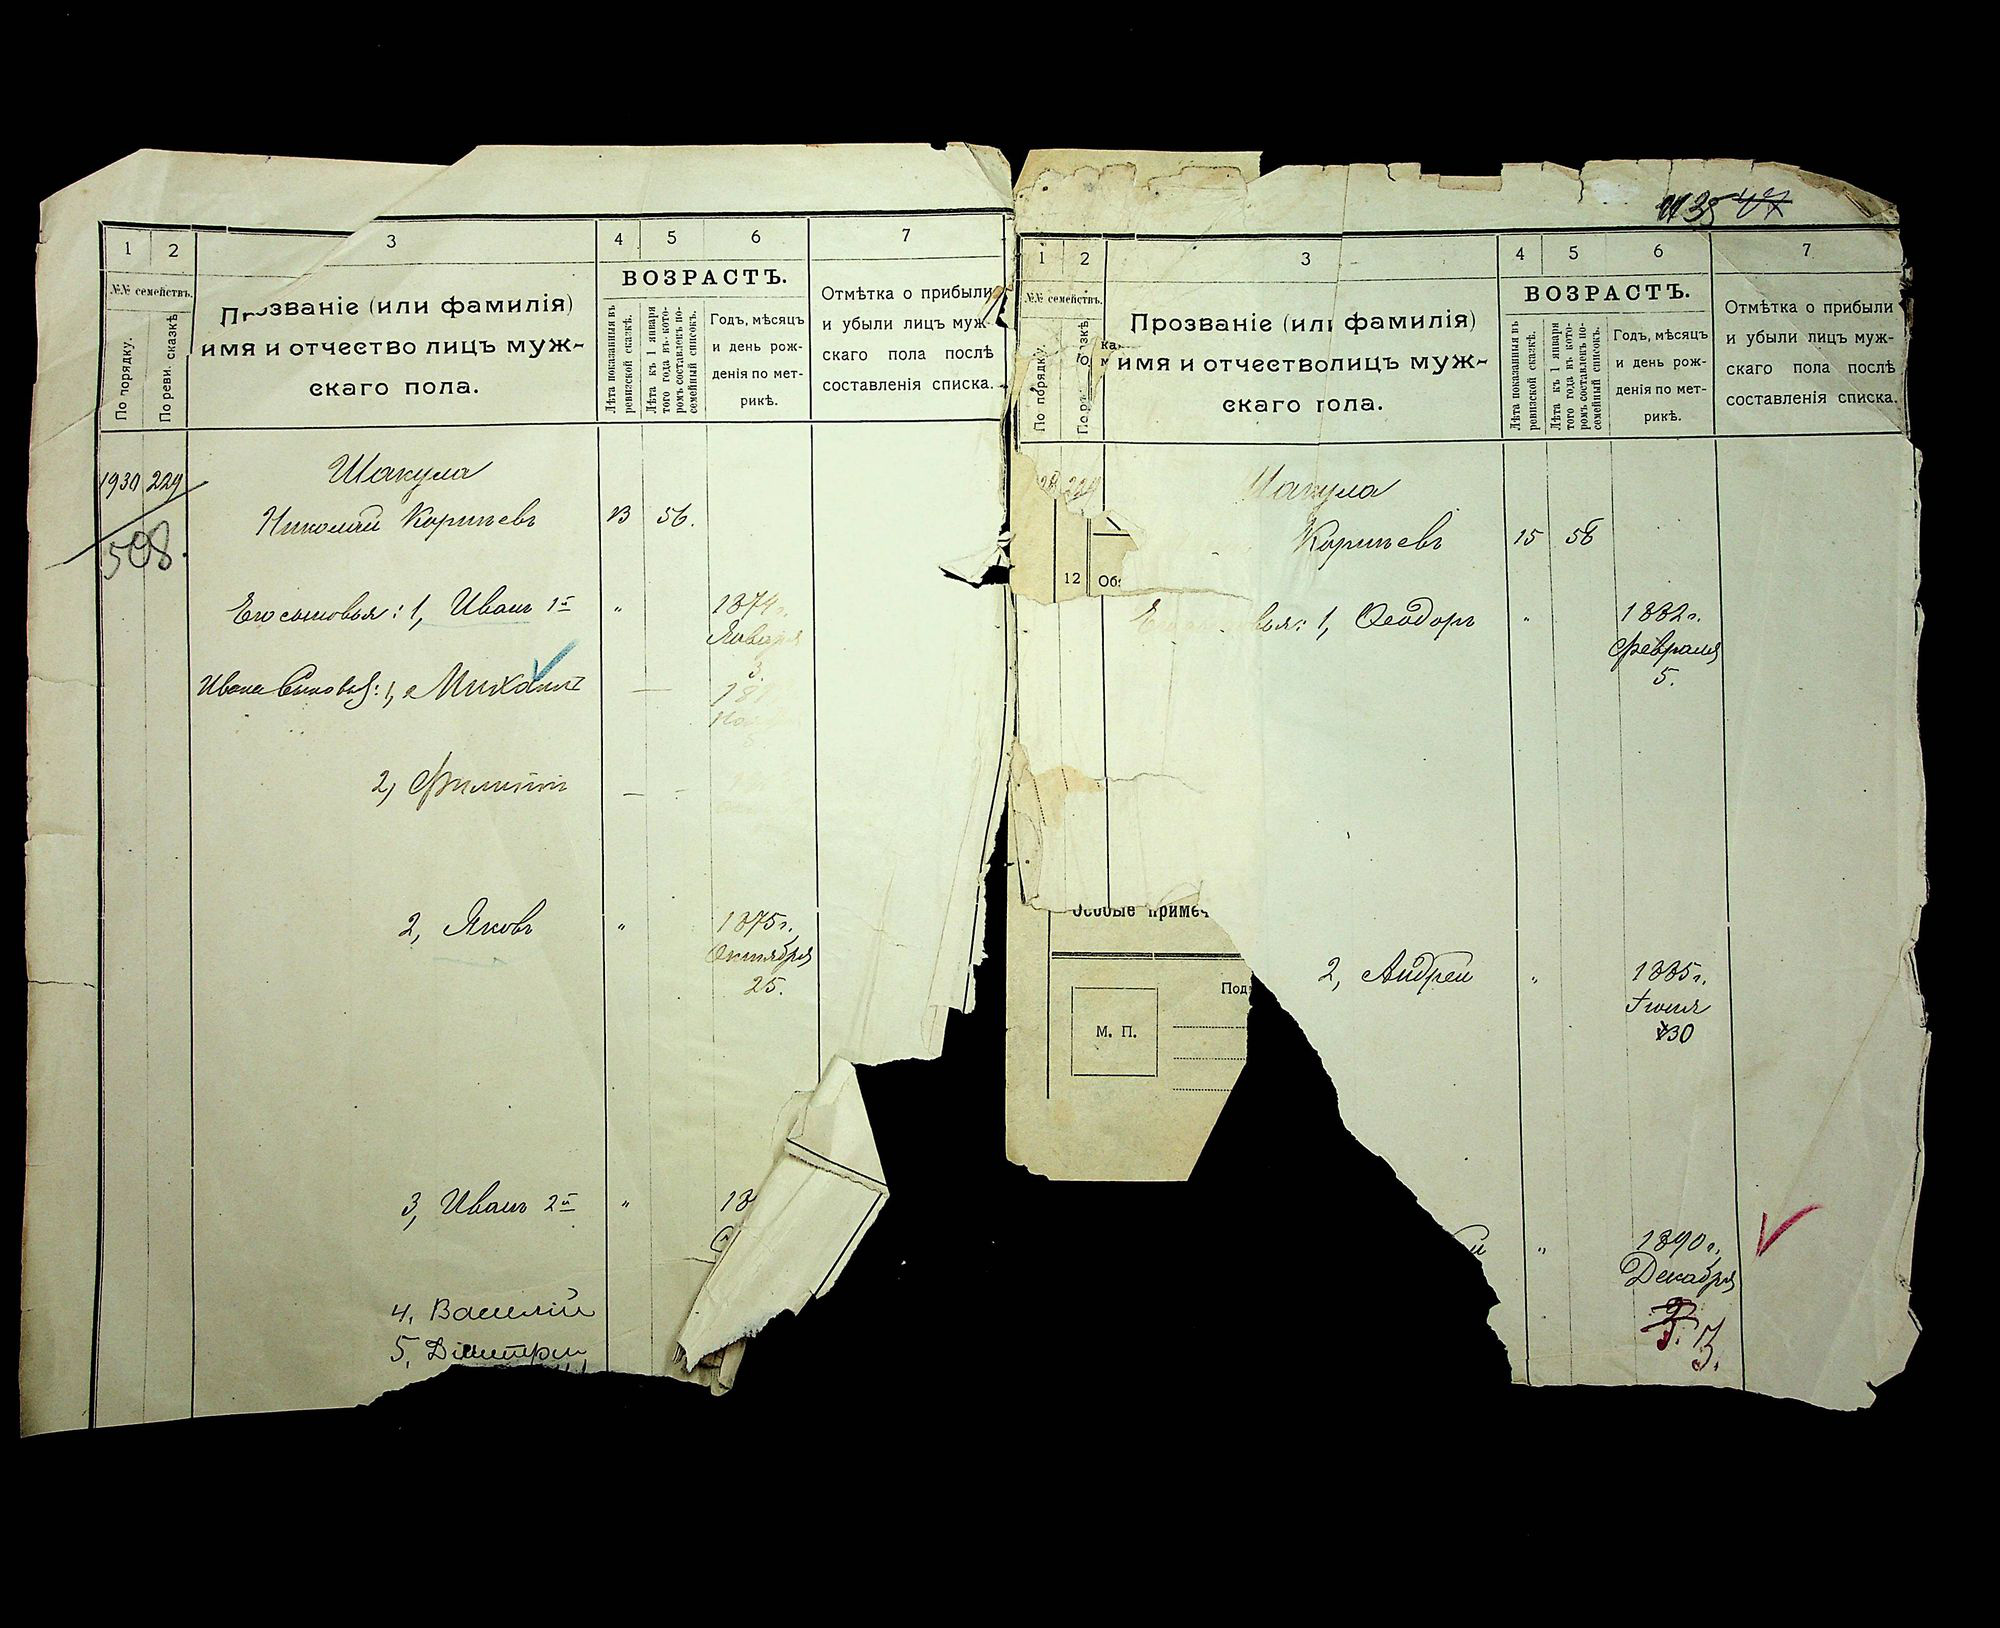 1
2
3
4
5
6
7
№№ семействъ.
По порядку.
По реви. сказкѣ
Прозваніе (или фамилія)
имя и отчество лицъ муж-
скаго пола.
ВОЗРАСТЪ.
Лѣта показанныя въ
ревизской сказкѣ.
Лѣта къ 1 января
того года въ кото-
ромъ составленъ по-
семейный списокъ.
Годъ, мѣсяцъ
и день рож-
денія по мет-
рикѣ.
Отмѣтка о прибыли
и убыли лицъ муж-
скаго пола послѣ
составленія списка.
1930 229
508.
Шакула
Николай Корнѣевъ 13 56.
Его сыновья: 1, Иванъ 1й " 1874г.
Января
3.
Ивана Сыновья: 1, Михаилъ —
2, Филиппъ — -
2, Яковъ " 1875г.
Октября
25.
3, Иванъ 2й " 18
4, Василій
5, Дмитрий
1135 47
1
2
3
4
5
6
7
№№ семействъ.
По порядку.
Прозваніе (или фамилія)
имя и отчество лицъ муж-
скаго пола.
ВОЗРАСТЪ.
Лѣта показанныя въ
ревизской сказкѣ.
Лѣта къ 1 января
того года въ кото-
ромъ составленъ по-
семейный списокъ.
Годъ, мѣсяцъ
и день рож-
денія по мет-
рикѣ.
Отмѣтка о прибыли
и убыли лицъ муж-
скаго пола послѣ
составленія списка.
229
Шакула
Корнѣевъ 15 58
12
1, Ѳеодоръ " 1882г.
Февраля
5.
Особые примѣч
2, Андрей " 1885г.
Іюня
30
М. П.
" 1890г.
Декабря
3.